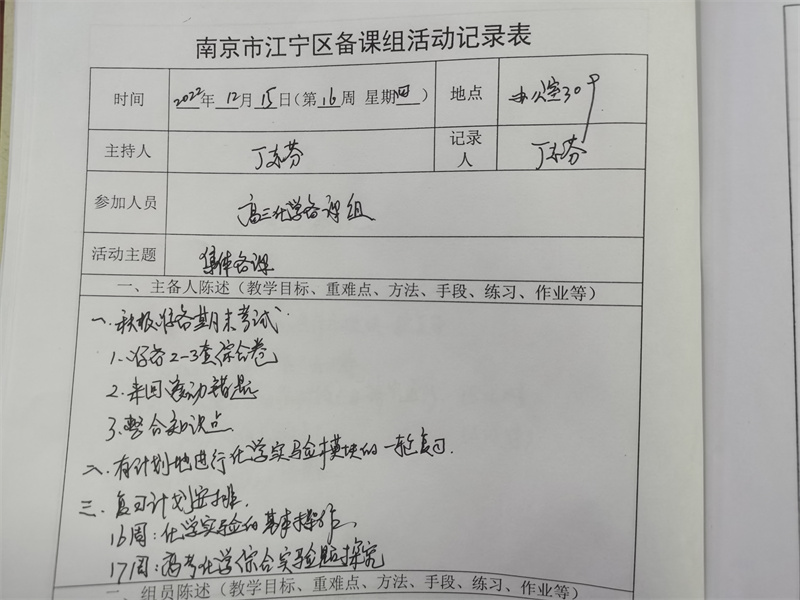 南京市江宁区备课组活动记录表
时间 2022年 12月 15日（第 16周 星期四） 地点 办公室309
主持人 丁志芬 记录人 丁志芬
参加人员 高三化学备课组
活动主题 集体备课
一、主备人陈述（教学目标、重难点、方法、手段、练习、作业等）
一. 积极准备期末考试
1. 准备2-3套综合卷
2. 来回滚动错题
3. 整合知识点
二. 有计划地进行化学实验模块的一轮复习.
三. 复习计划安排.
16周：化学实验的基本操作
17周：高考化学综合实验题探究
一、组员陈述（教学目标、重难点、方法、手段、练习、作业等）